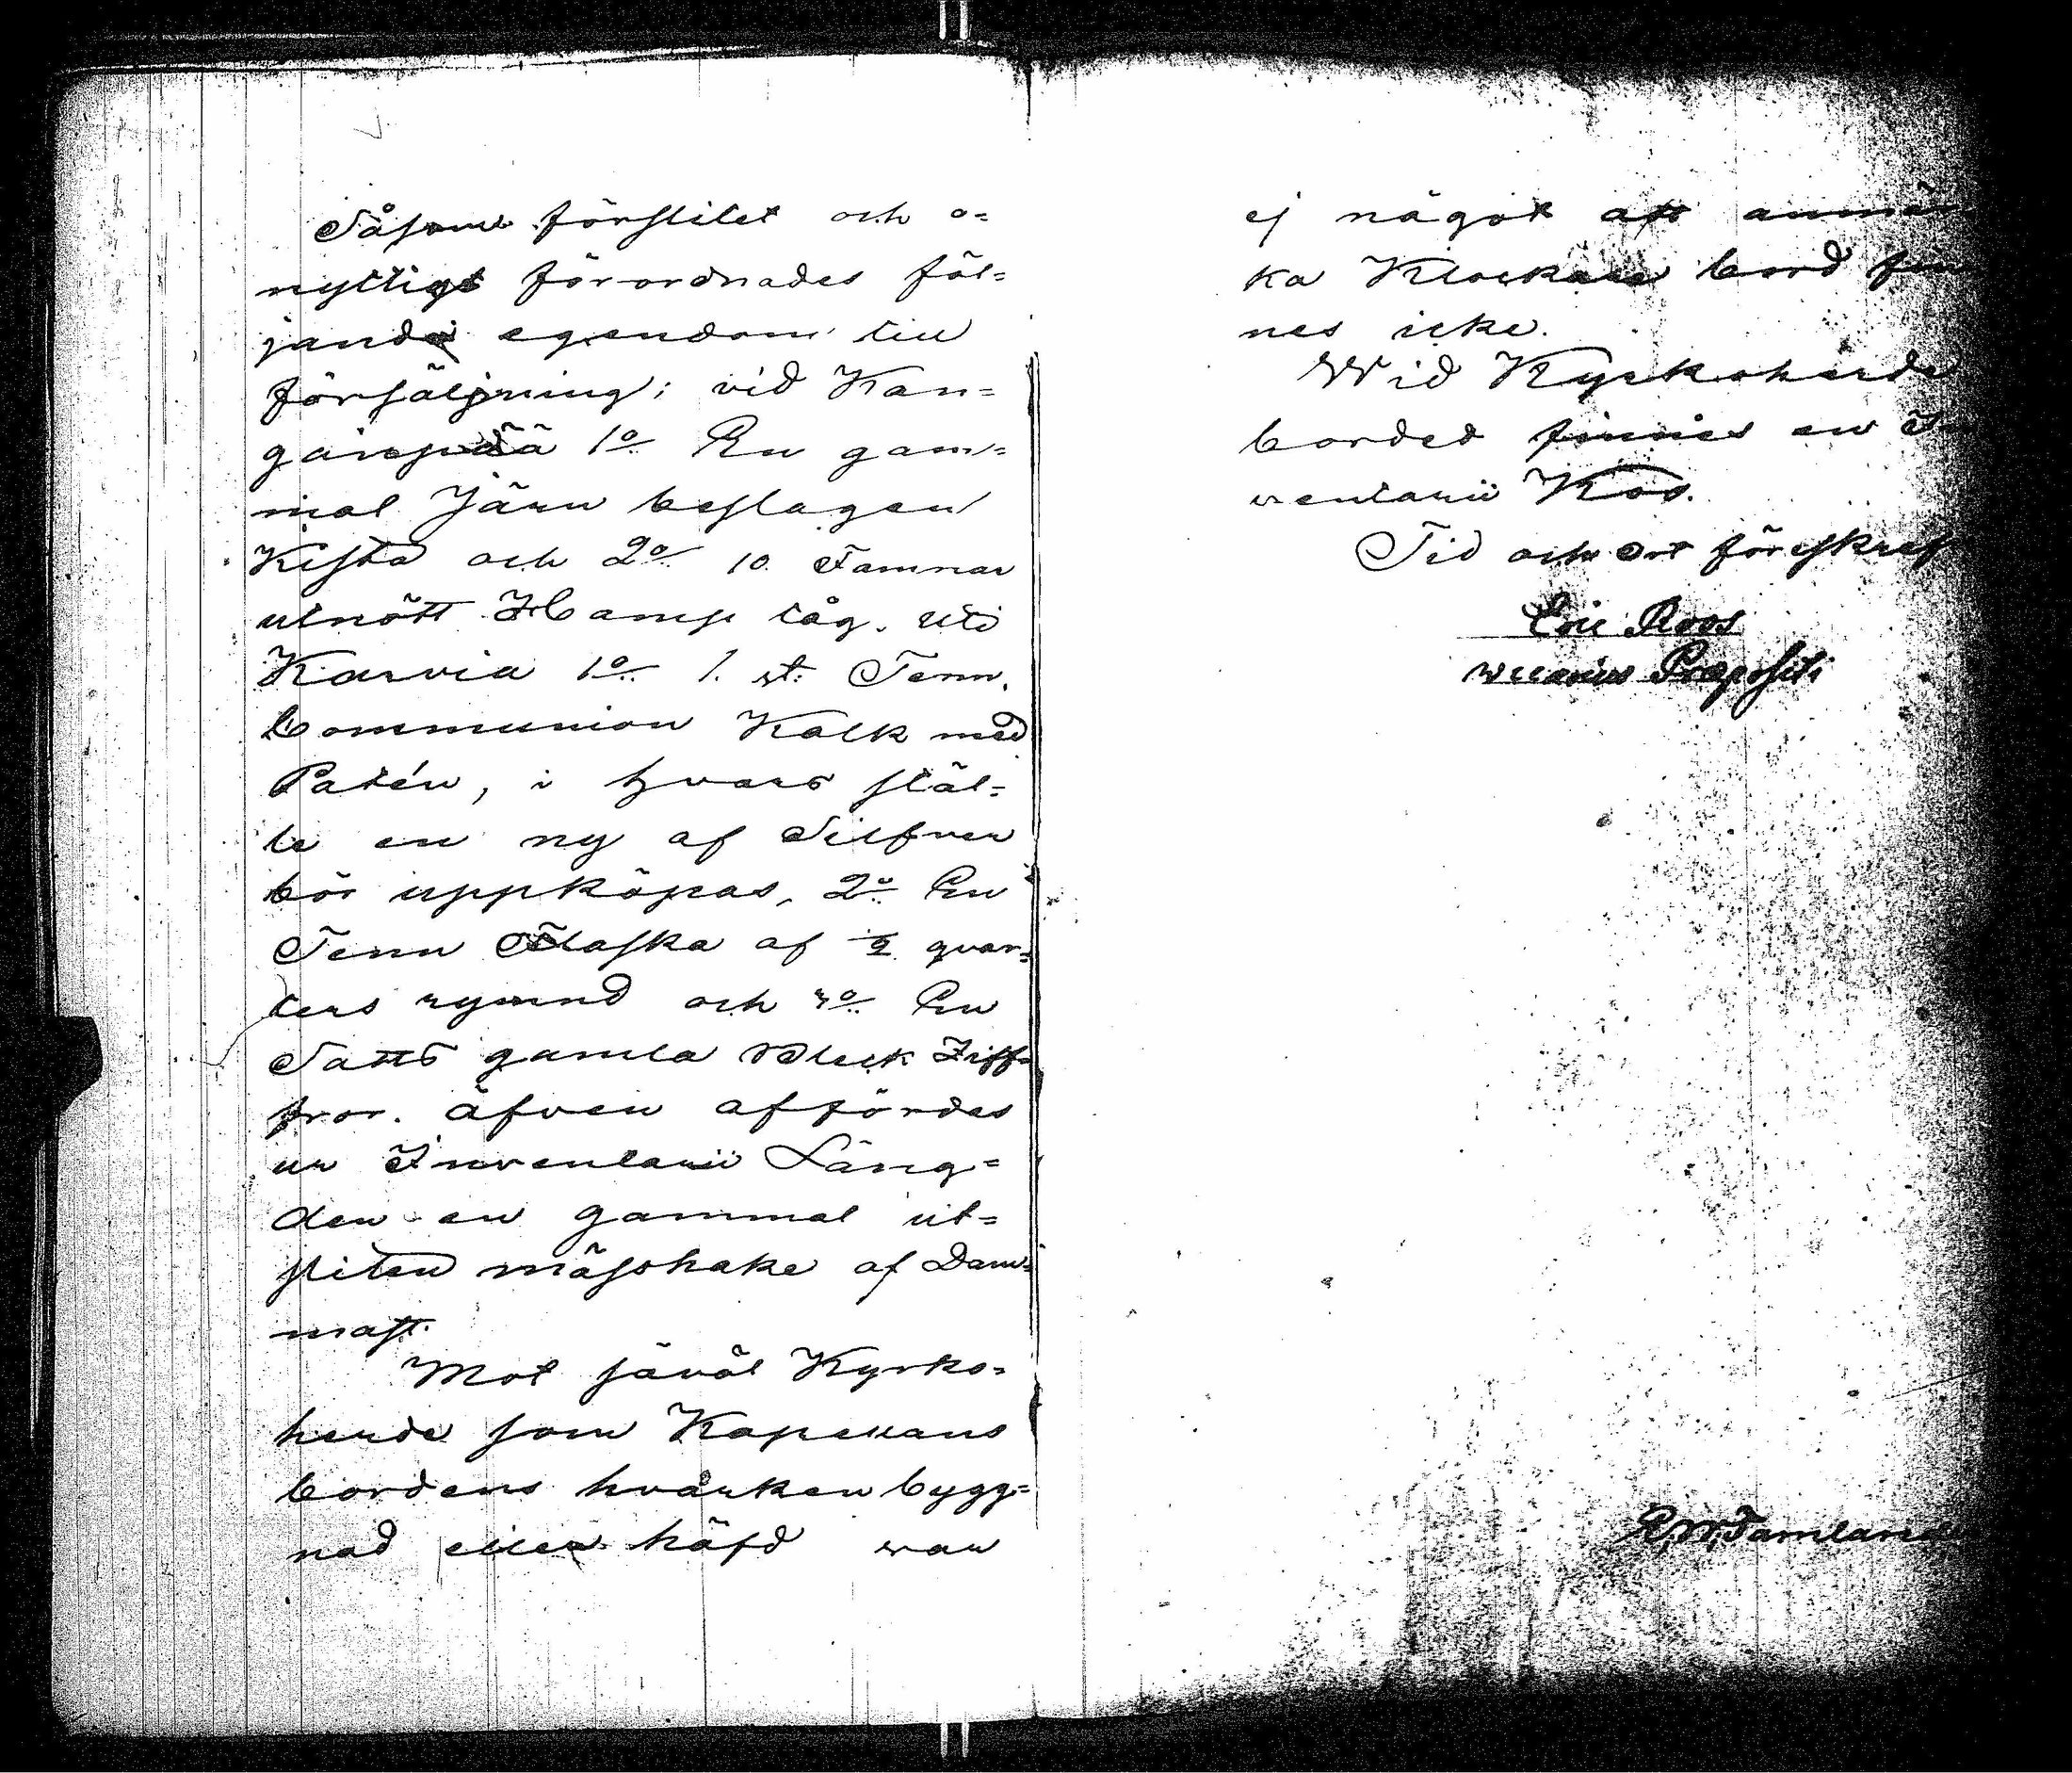 Såsom förslitet och o=
nyttigt förordnades föl=
jande egendom till
försäljning; vid Kan=
gånpää 1o En gam=
mal Järn beslagen
Kista och 2o 10 Famnar
utnött Hamp tåg. Uti
Karvia 1o 1. st. Tenn.
Communion Kalk med
Patén, i hvars stäl=
le en ny af Silfver
bör uppköpas, 2o En
Tenn Flaska af 2 qvar=
ters rymnd och 3o En
Satts gamla Bleck Ziff=
fror. äfven affördes
ur Inventarii Läng=
den en gammal ut=
sliten mässhake af Dam=
mast.
Mot såväl Kyrko=
herde som Kapellans
bordens hvarken bygg=
nad eller häfd war
ej något att anmär
ka Klockare bord fin
nes icke.
Wid Kyrkoherde
bordet finnes en In
ventarii Ko.
Tid och Ort förskref
Eric Roos
vicarius Præpositi